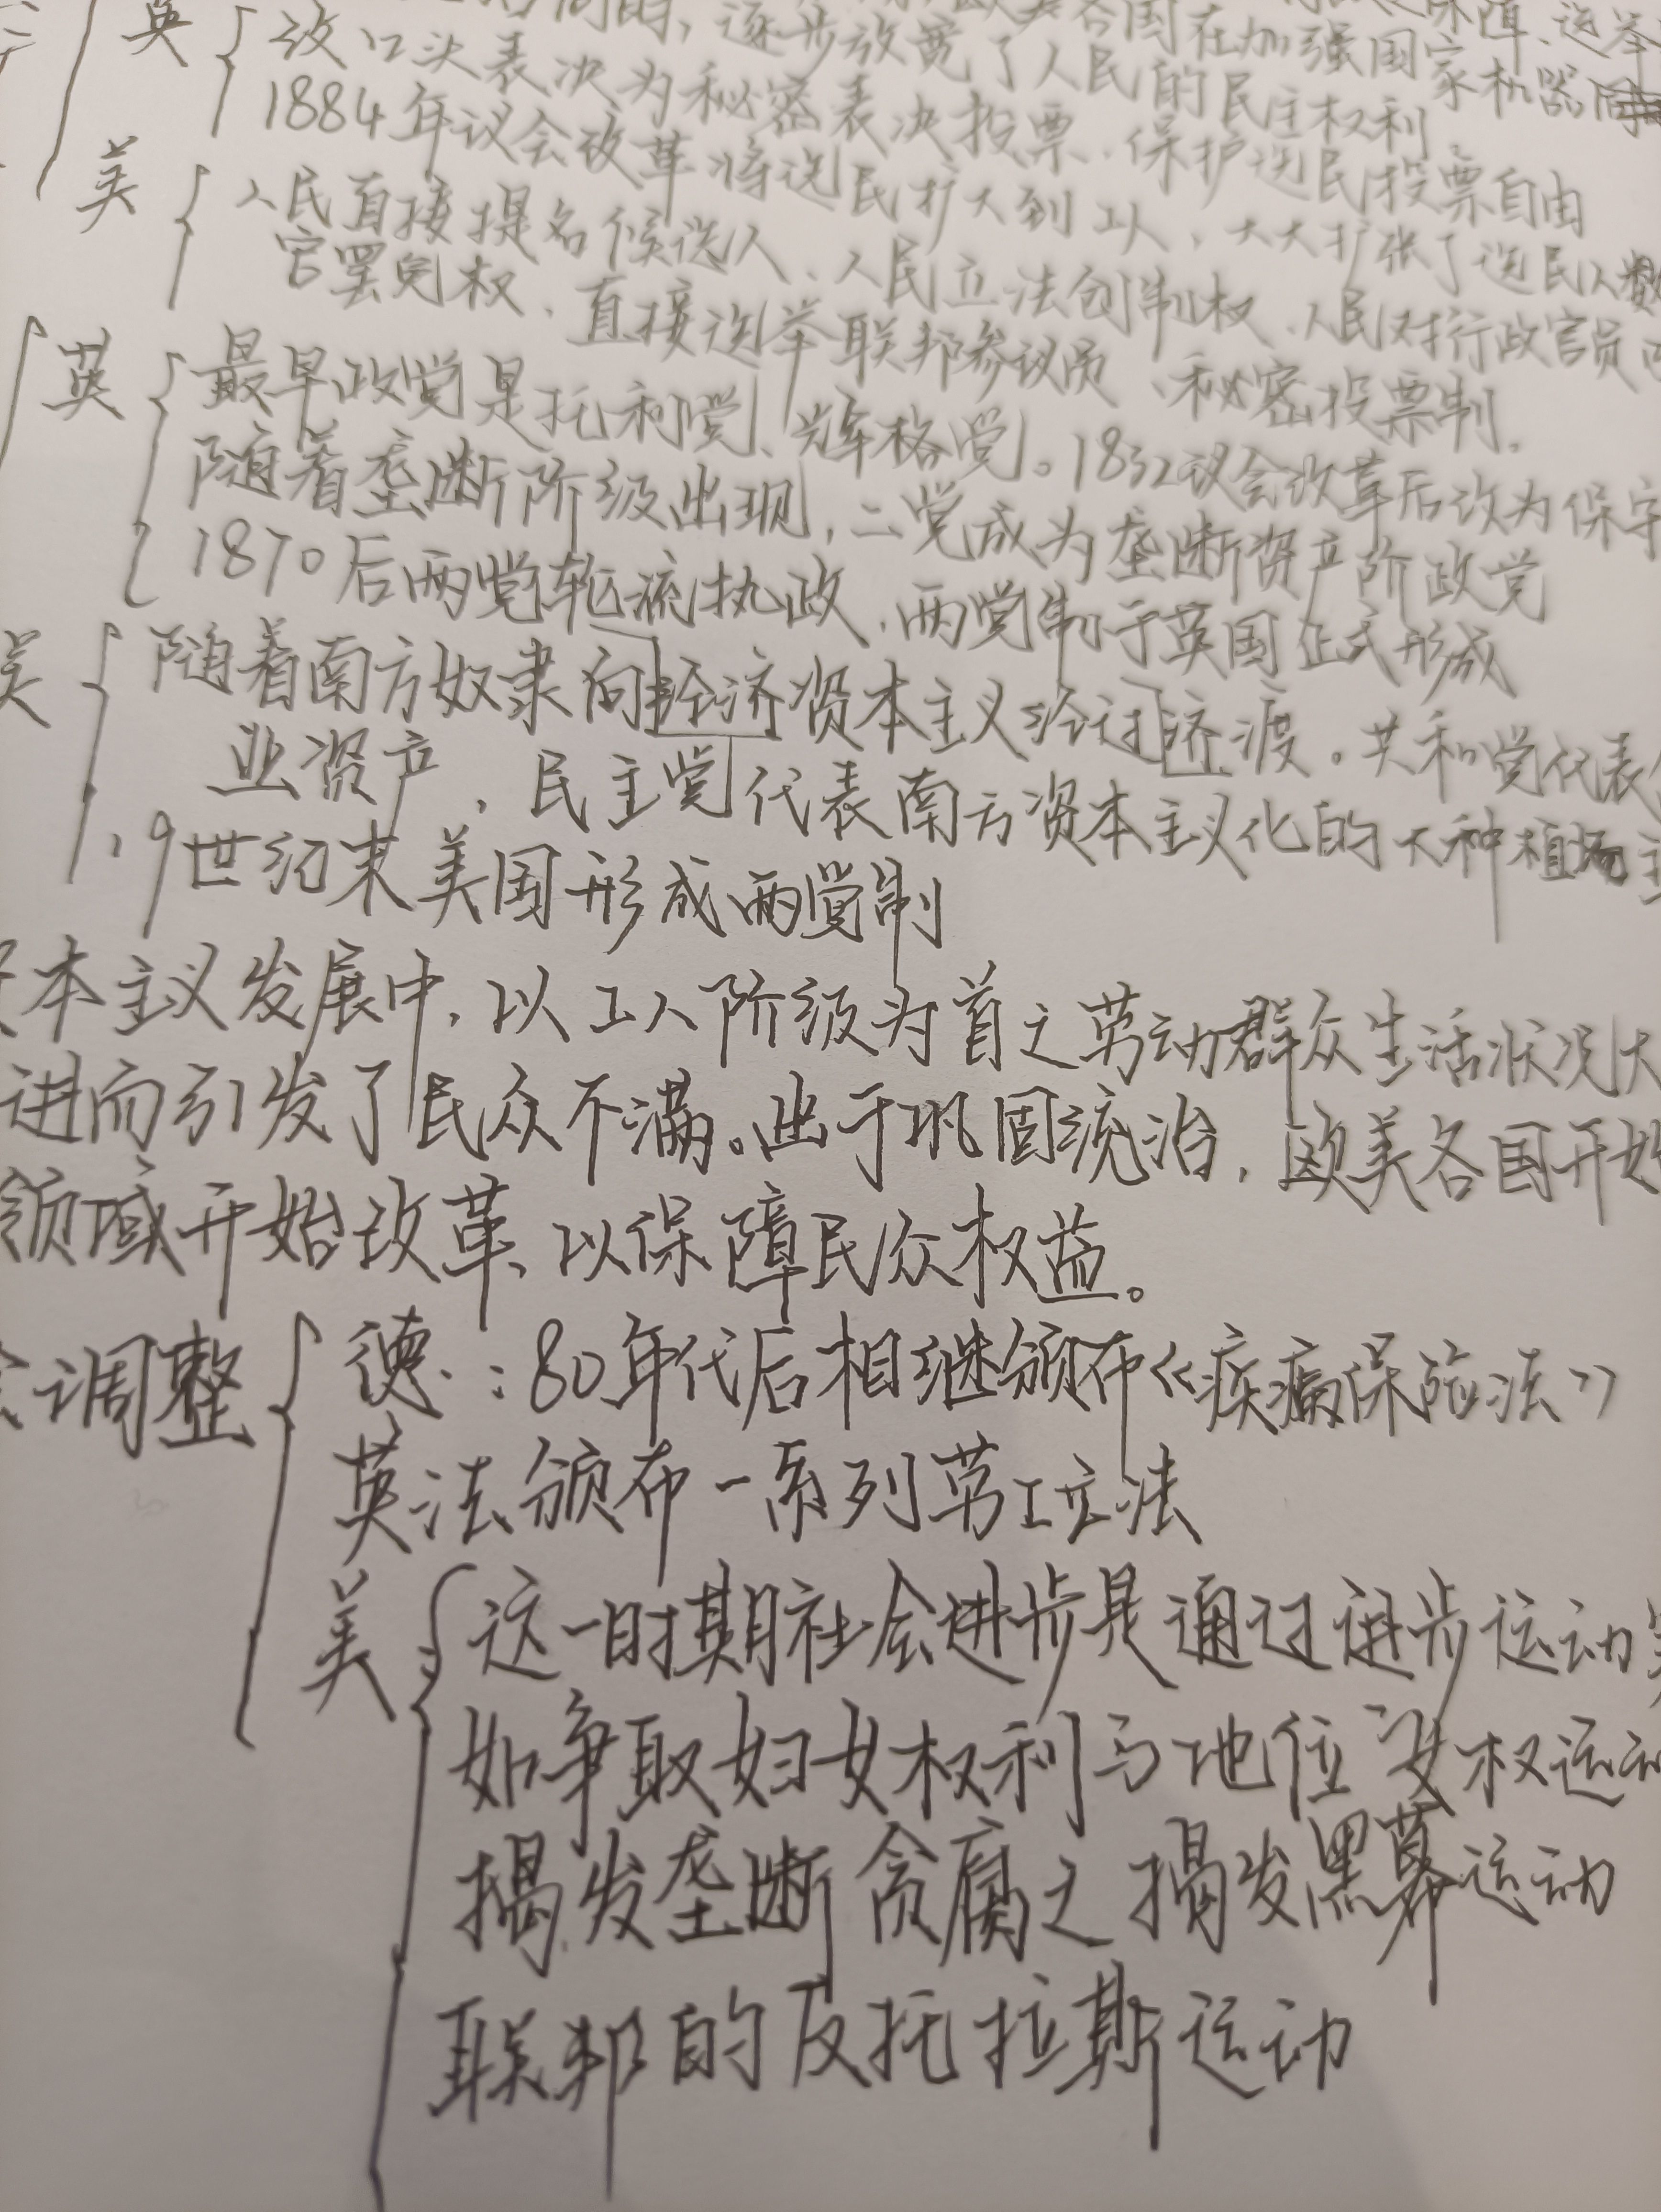 逐步放宽了人民的民主权利
各国在加强国家机器
英 改口头表决为秘密表决投票、保护选民投票自由
1884年议会改革将选民扩大到工人、大大扩张了选民人数
美 人民直接提名候选人、人民立法创制权、人民对行政官员
官罢免权、直接选举联邦参议员、秘密投票制。
英 最早政党是托利党、辉格党。1832议会改革后改为保守
随着垄断阶级出现,二党成为垄断资产阶政党
1870后两党轮流执政、两党制于英国正式形成
美 随着南方奴隶向经济资本主义经过济渡。共和党代表
业资产、民主党代表南方资本主义化的大种植场主
19世纪末美国形成两党制
本主义发展中,以工人阶级为首之劳动群众生活状况大
进而引发了民众不满。出于巩固统治,欧美各国开始
领域开始改革、以保障民众权益。
调整 德:80年代后相继颁布《疾病保险法》
英法颁布一系列劳工立法
美 这一时期社会进步是通过进步运动
如争取妇女权利与地位女权运动
揭发垄断贪腐之揭发黑幕运动
联邦的反托拉斯运动